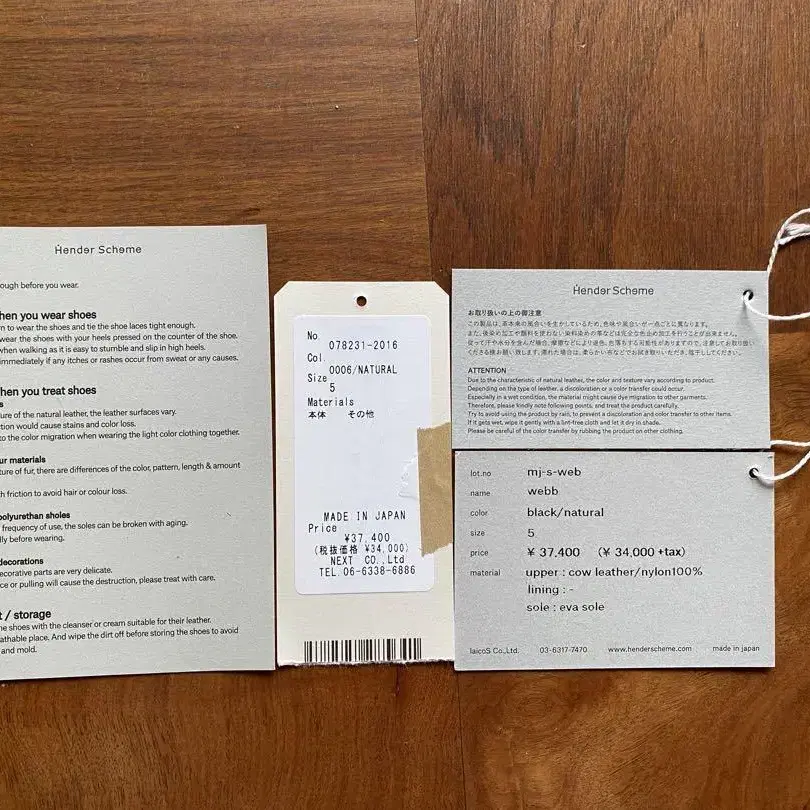 Hender Scheme
ough before you wear.
hen you wear shoes
n to wear the shoes and tie the shoe laces tight enough.
wear the shoes with your heels pressed on the counter of the shoe.
when walking as it is easy to stumble and slip in high heels.
immediately if any itches or rashes occur from sweat or any causes.
hen you treat shoes
s
ure of the natural leather, the leather surfaces vary.
ction would cause stains and color loss.
to the color migration when wearing the light color clothing together.
ur materials
ture of fur, there are differences of the color, pattern, length & amount
h friction to avoid hair or colour loss.
polyurethan sholes
frequency of use, the soles can be broken with aging.
lly before wearing.
decorations
ecorative parts are very delicate.
ce or pulling will cause the destruction, please treat with care.
t / storage
he shoes with the cleanser or cream suitable for their leather.
athable place, And wipe the dirt off before storing the shoes to avoid
and mold.
No 078231-2016
Col. 0006/NATURAL
Size 5
Materials
本体 その他
MADE IN JAPAN
Price
¥37,400
(税抜価格 ¥34,000)
NEXT CO.,Ltd
TEL.06-6338-6886
Hender Scheme
お取り扱いの上の御注意
この製品は、革本来の風合いを生かしているため、色味や風合いが一点ごとに異なります。
また、後染め加工や顔料を使わない染料染めの革などは完全な色止め加工を行うことが出来ません。
従って汗や水分を含んだ場合、摩擦などにより退色、色落ちする可能性がありますので、注意してお取り扱い
くださる様お願い致します。濡れた場合は、柔らかい布などでお拭き取りいただき、陰干ししてください。
ATTENTION
Due to the characteristic of natural leather, the color and texture vary according to product.
Depending on the type of leather, a discoloration or a color transfer could occur.
Especially in a wet condition, the material might cause dye migration to other garments.
Therefore, please kindly note following points, and treat the product carefully.
Try to avoid using the product by rain, to prevent a discoloration and color transfer to other items.
If it gets wet, wipe it gently with a lint-free cloth and let it dry in shade.
Please be careful of the color transfer by rubbing the product on other clothing.
lot.no mj-s-web
name webb
color black/natural
size 5
price ¥ 37,400 (¥ 34,000 +tax)
material upper : cow leather/nylon100%
lining : -
sole : eva sole
laicoS Co.,Ltd. 03-6317-7470 www.henderscheme.com made in japan